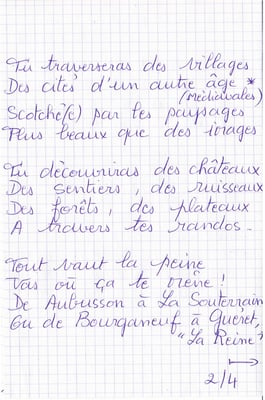 Tu traverseras des villages
Des cités d'un autre âge *
(Médiévales)
Scotché(e) par les paysages
Plus beaux que des images
Tu découvriras des châteaux
Des sentiers, des ruisseaux
Des forêts, des plateaux
A travers tes randos.
Tout vaut la peine
Vas où ça te mène !
De Aubusson à La Souterrain
Ou de Bourganeuf à Guéret,
"La Reine"
2/4